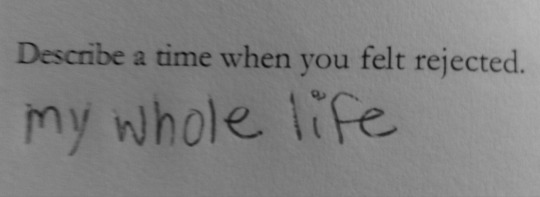 Describe a time when you felt rejected.
my whole life